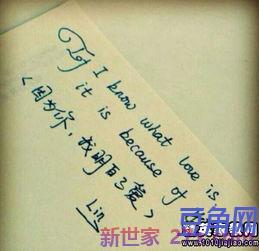 If I know what love is,
it is because of
<因为你，我明白了爱>
Lin
新世家
www.1010jiajiao.com